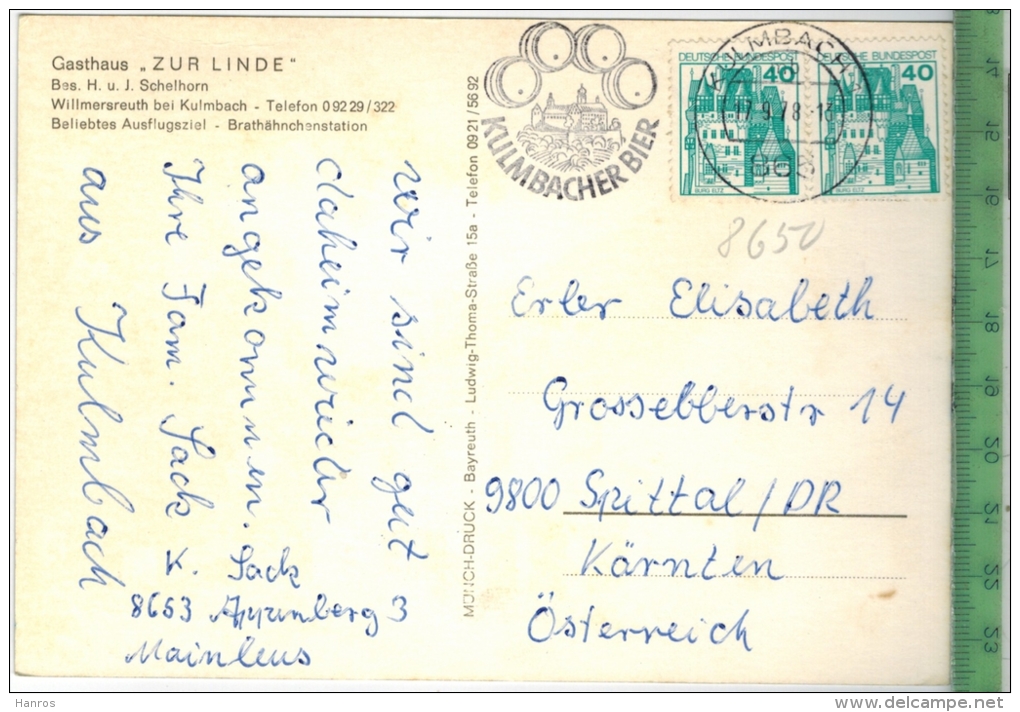 Gasthaus „ZUR LINDE"
Bes. H. u. J. Schelhorn
Willmersreuth bei Kulmbach - Telefon 0 92 29 / 322
Beliebtes Ausflugsziel - Brathähnchenstation
wir sind gut
daheim wieder
angekommen.
Ihre Fam. Sack
aus Kulmbach
K. Sack
8653 Appenberg 3
Mainleus
MÜNCH-DRUCK - Bayreuth - Ludwig-Thoma-Straße 15a - Telefon 09 21 / 56 92
KULMBACHER BIER
KULMBACH 1
17.9.78-13
865
DEUTSCHE BUNDESPOST
40
BURG ELTZ
DEUTSCHE BUNDESPOST
40
BURG ELTZ
8650
Erler Elisabeth
Grossebberstr 14
9800 Spittal / DR
Kärnten
Österreich
14
15
17
18
19
20
51
55
53
Hanros
delcampe.net